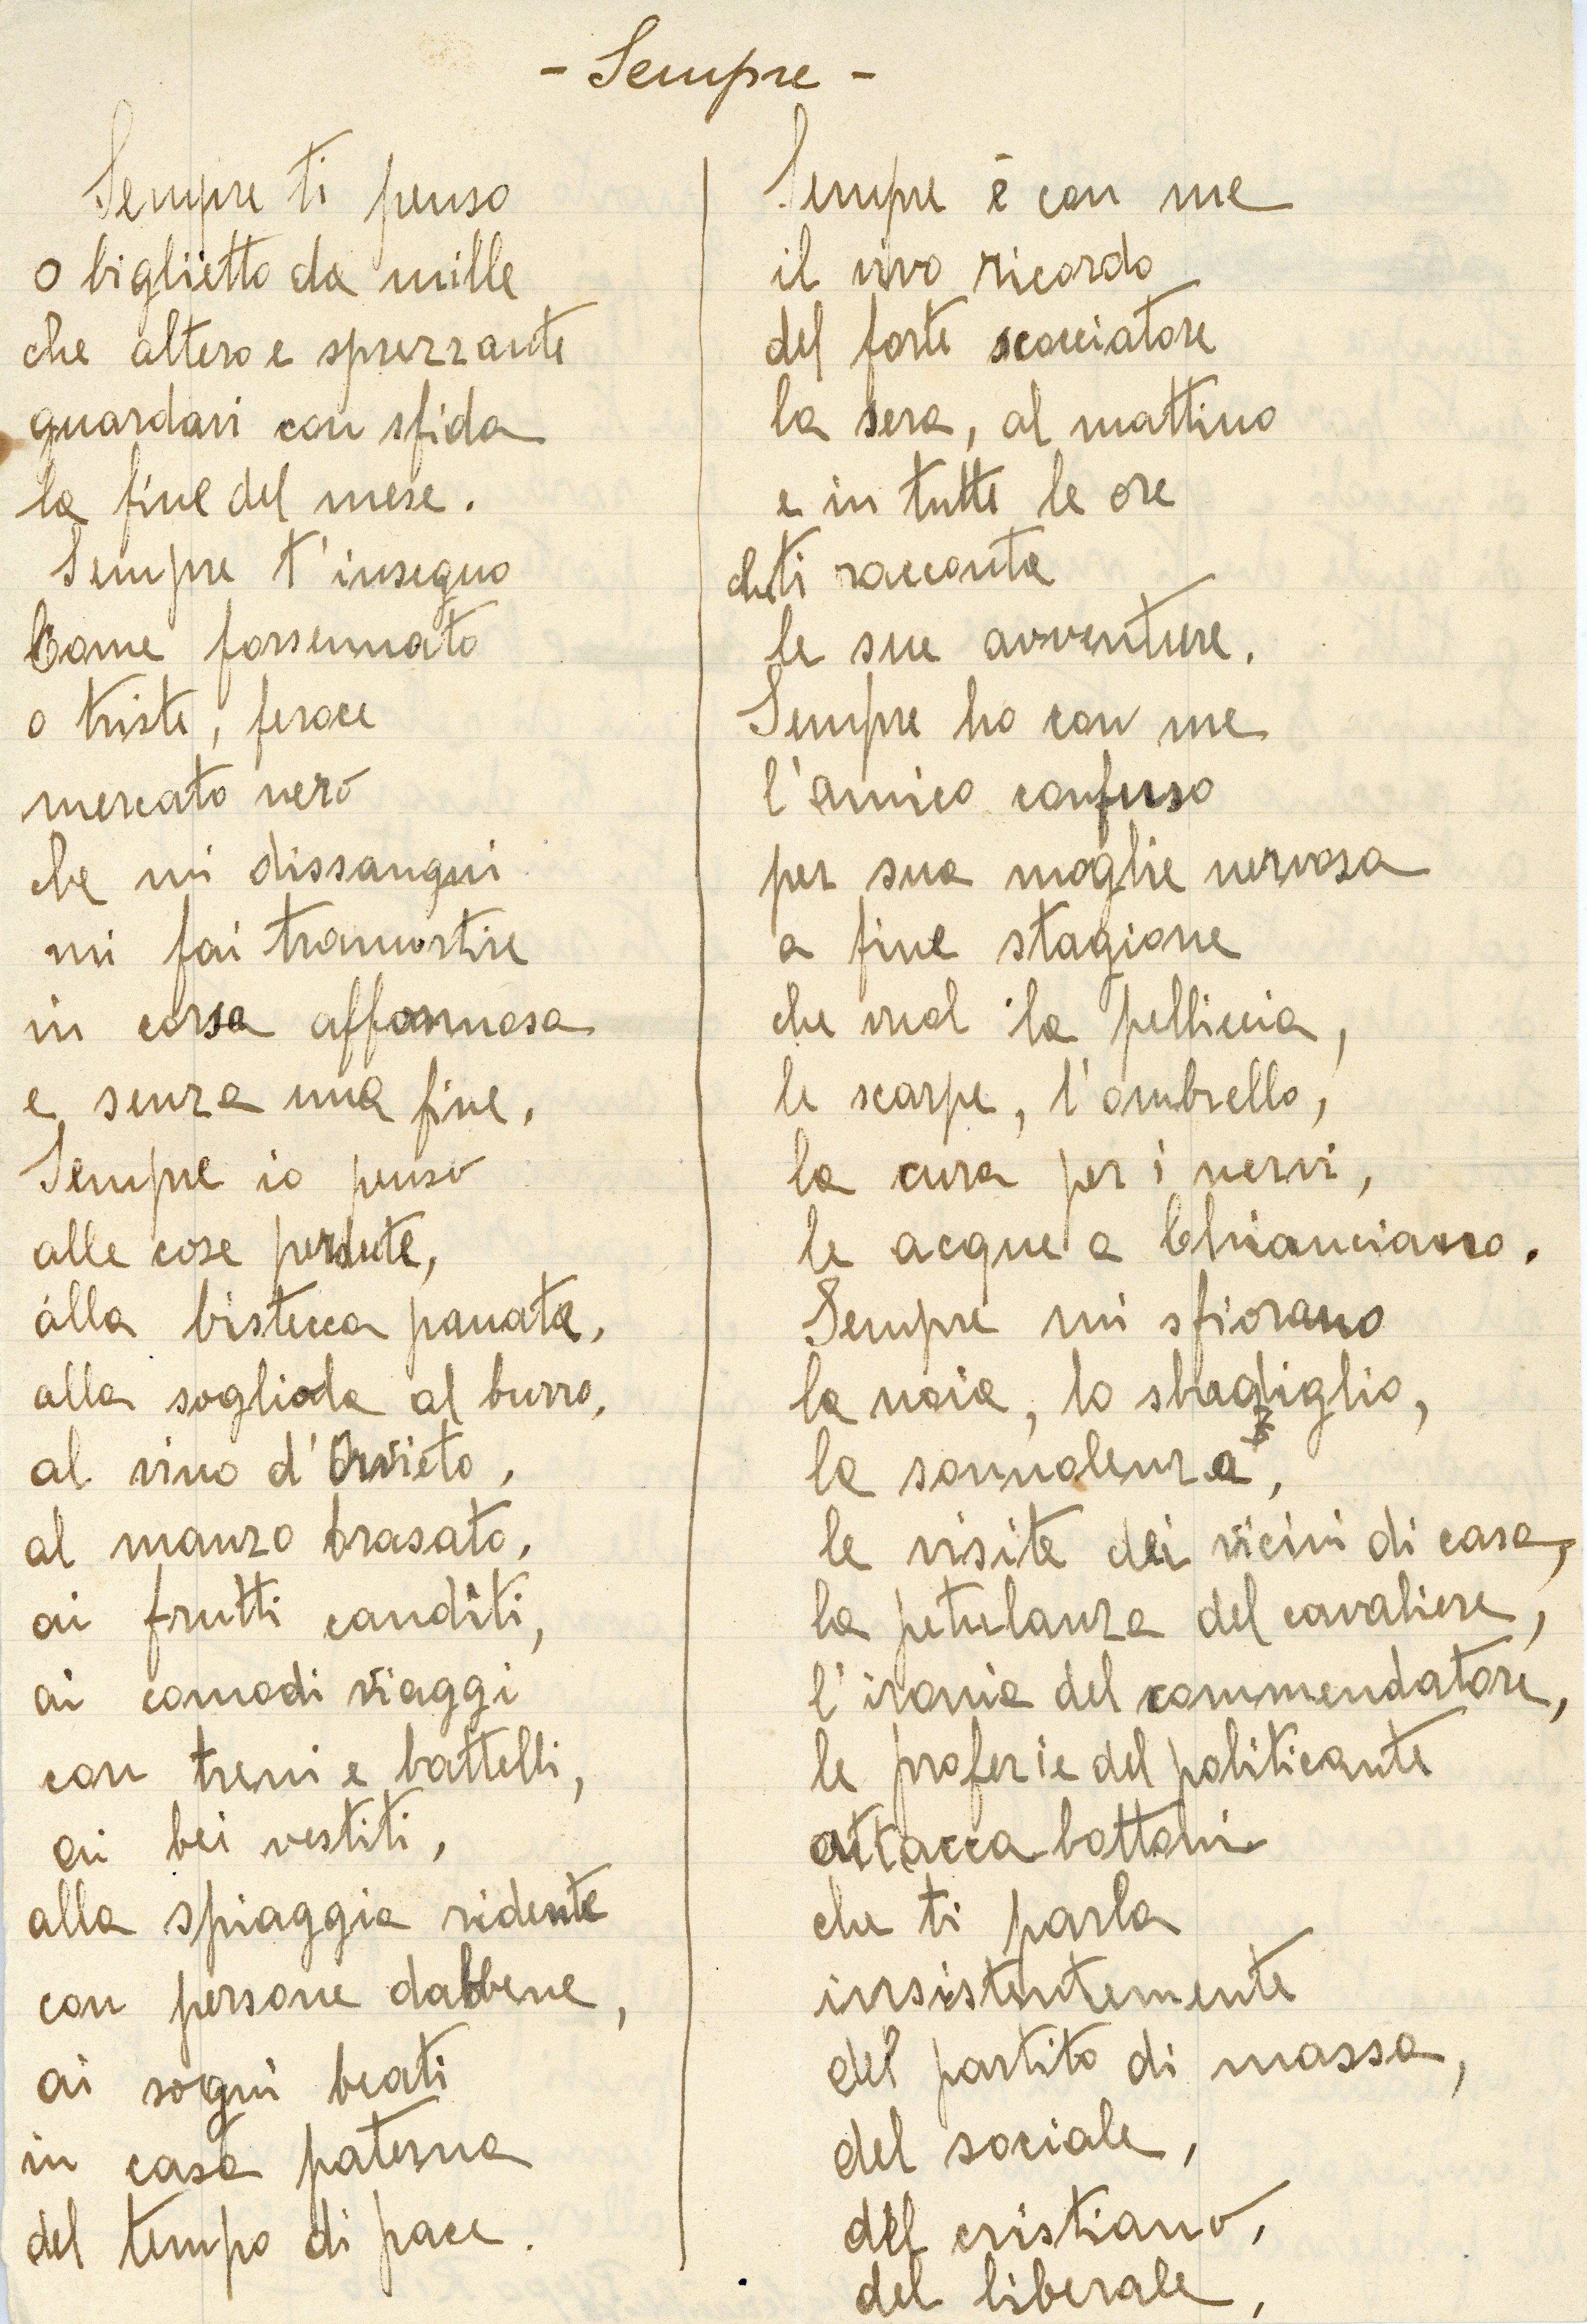 - Sempre -
Sempre ti penso
o biglietto da mille
che altero e sprezzante
guardavi con sfida
la fine del mese.
Sempre t'inseguo
Come forsennato
o triste, feroce
mercato nero
che mi dissangui
mi fai tramortire
in corsa affannosa
e senza una fine.
Sempre io penso
alle cose perdute,
alla bistecca panata,
alla sogliola al burro,
al vino d'Orvieto,
al manzo brasato,
ai frutti canditi,
ai comodi viaggi
con treni e battelli,
ai bei vestiti,
alla spiaggia ridente
con persone dabbene,
ai sogni beati
in casa paterna
del tempo di pace.
Sempre è con me
il vivo ricordo
del forte scocciatore
la sera, al mattino
e in tutte le ore
che ti racconta
le sue avventure.
Sempre ho con me
l'amico confuso
per sua moglie nervosa
a fine stagione
che vuol la pelliccia,
le scarpe, l'ombrello,
la cura per i nervi,
le acque a Chianciano.
Sempre mi sfiorano
la noia, lo sbadiglio,
la sonnolenza,
le visite dei vicini di casa,
la petulanza del cavaliere,
l'ironia del commendatore,
le profezie del politicante
attacca bottoni
che ti parla
insistentemente
del partito di massa,
del sociale,
del cristiano,
del liberale,